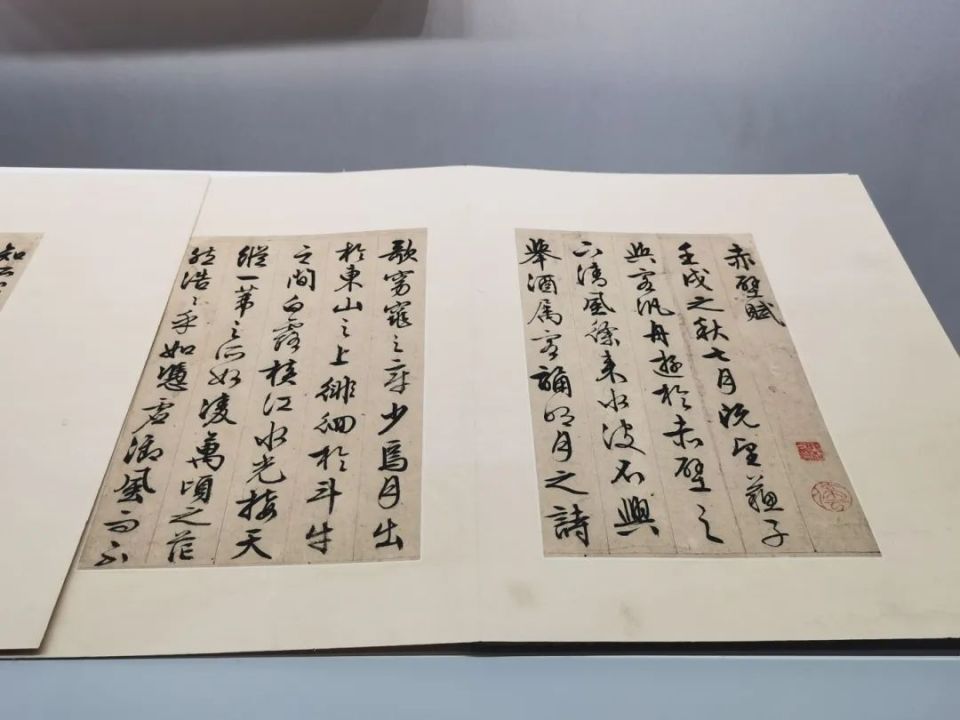 赤壁賦
壬戌之秋七月既望蘇子
與客汎舟遊於赤壁之
下清風徐來水波不興
舉酒属客誦明月之詩
歌窈窕之章少焉月出
於東山之上徘徊於斗牛
之間白露橫江水光接天
縱一葦之所如凌萬頃之茫
然浩〻乎如憑虛御風而不
知